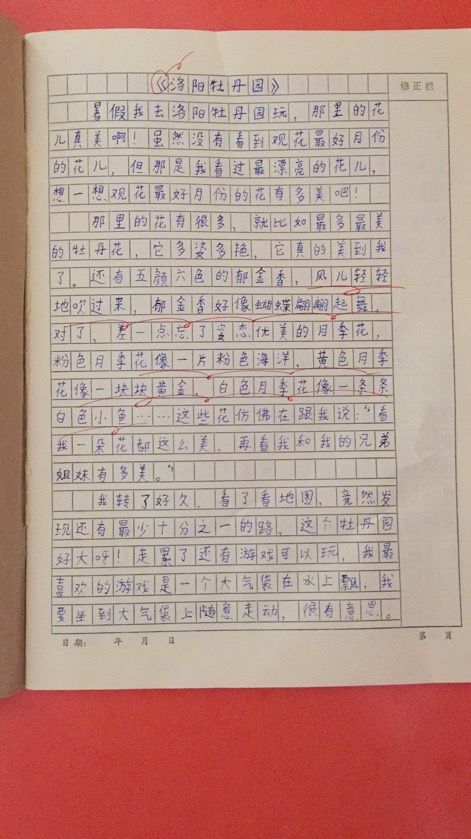 《洛阳牡丹园》
修正栏
暑假我去洛阳牡丹园玩，那里的花
儿真美啊！虽然没有看到观花最好月份
的花儿，但那是我看过最漂亮的花儿，
想一想观花最好月份的花有多美吧！
那里的花有很多，就比如最多最美
的牡丹花，它多姿多艳，它真的美到我
了。还有五颜六色的郁金香，风儿轻轻
地吹过来，郁金香好像蝴蝶翩翩起舞，
对了，差一点忘了姿态优美的月季花，
粉色月季花像一片粉色海洋，黄色月季
花像一块块黄金，白色月季花像一条条
白色小鱼……这些花仿佛在跟我说：“看
我一朵花都这么美，再看我和我的兄弟
姐妹有多美。”
我转了好久，看了看地图，竟然发
现还有最少十分之一的路，这个牡丹园
好大呀！走累了还有游戏可以玩，我最
喜欢的游戏是一个大气袋在水上飘，我
要坐到大气袋上随意走动，很有意思。
日期： 年 月 日 第 页